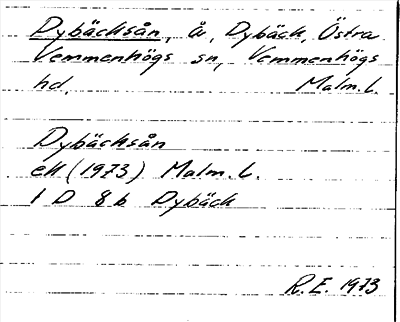 Dybäcksån, å, Dybäck, Östra
Vemmenhögs sn, Vemmenhögs
hd. Malm. L.
Dybäcksån
ek (1973) Malm. L.
1 D 8 b Dybäck
R.E. 1973